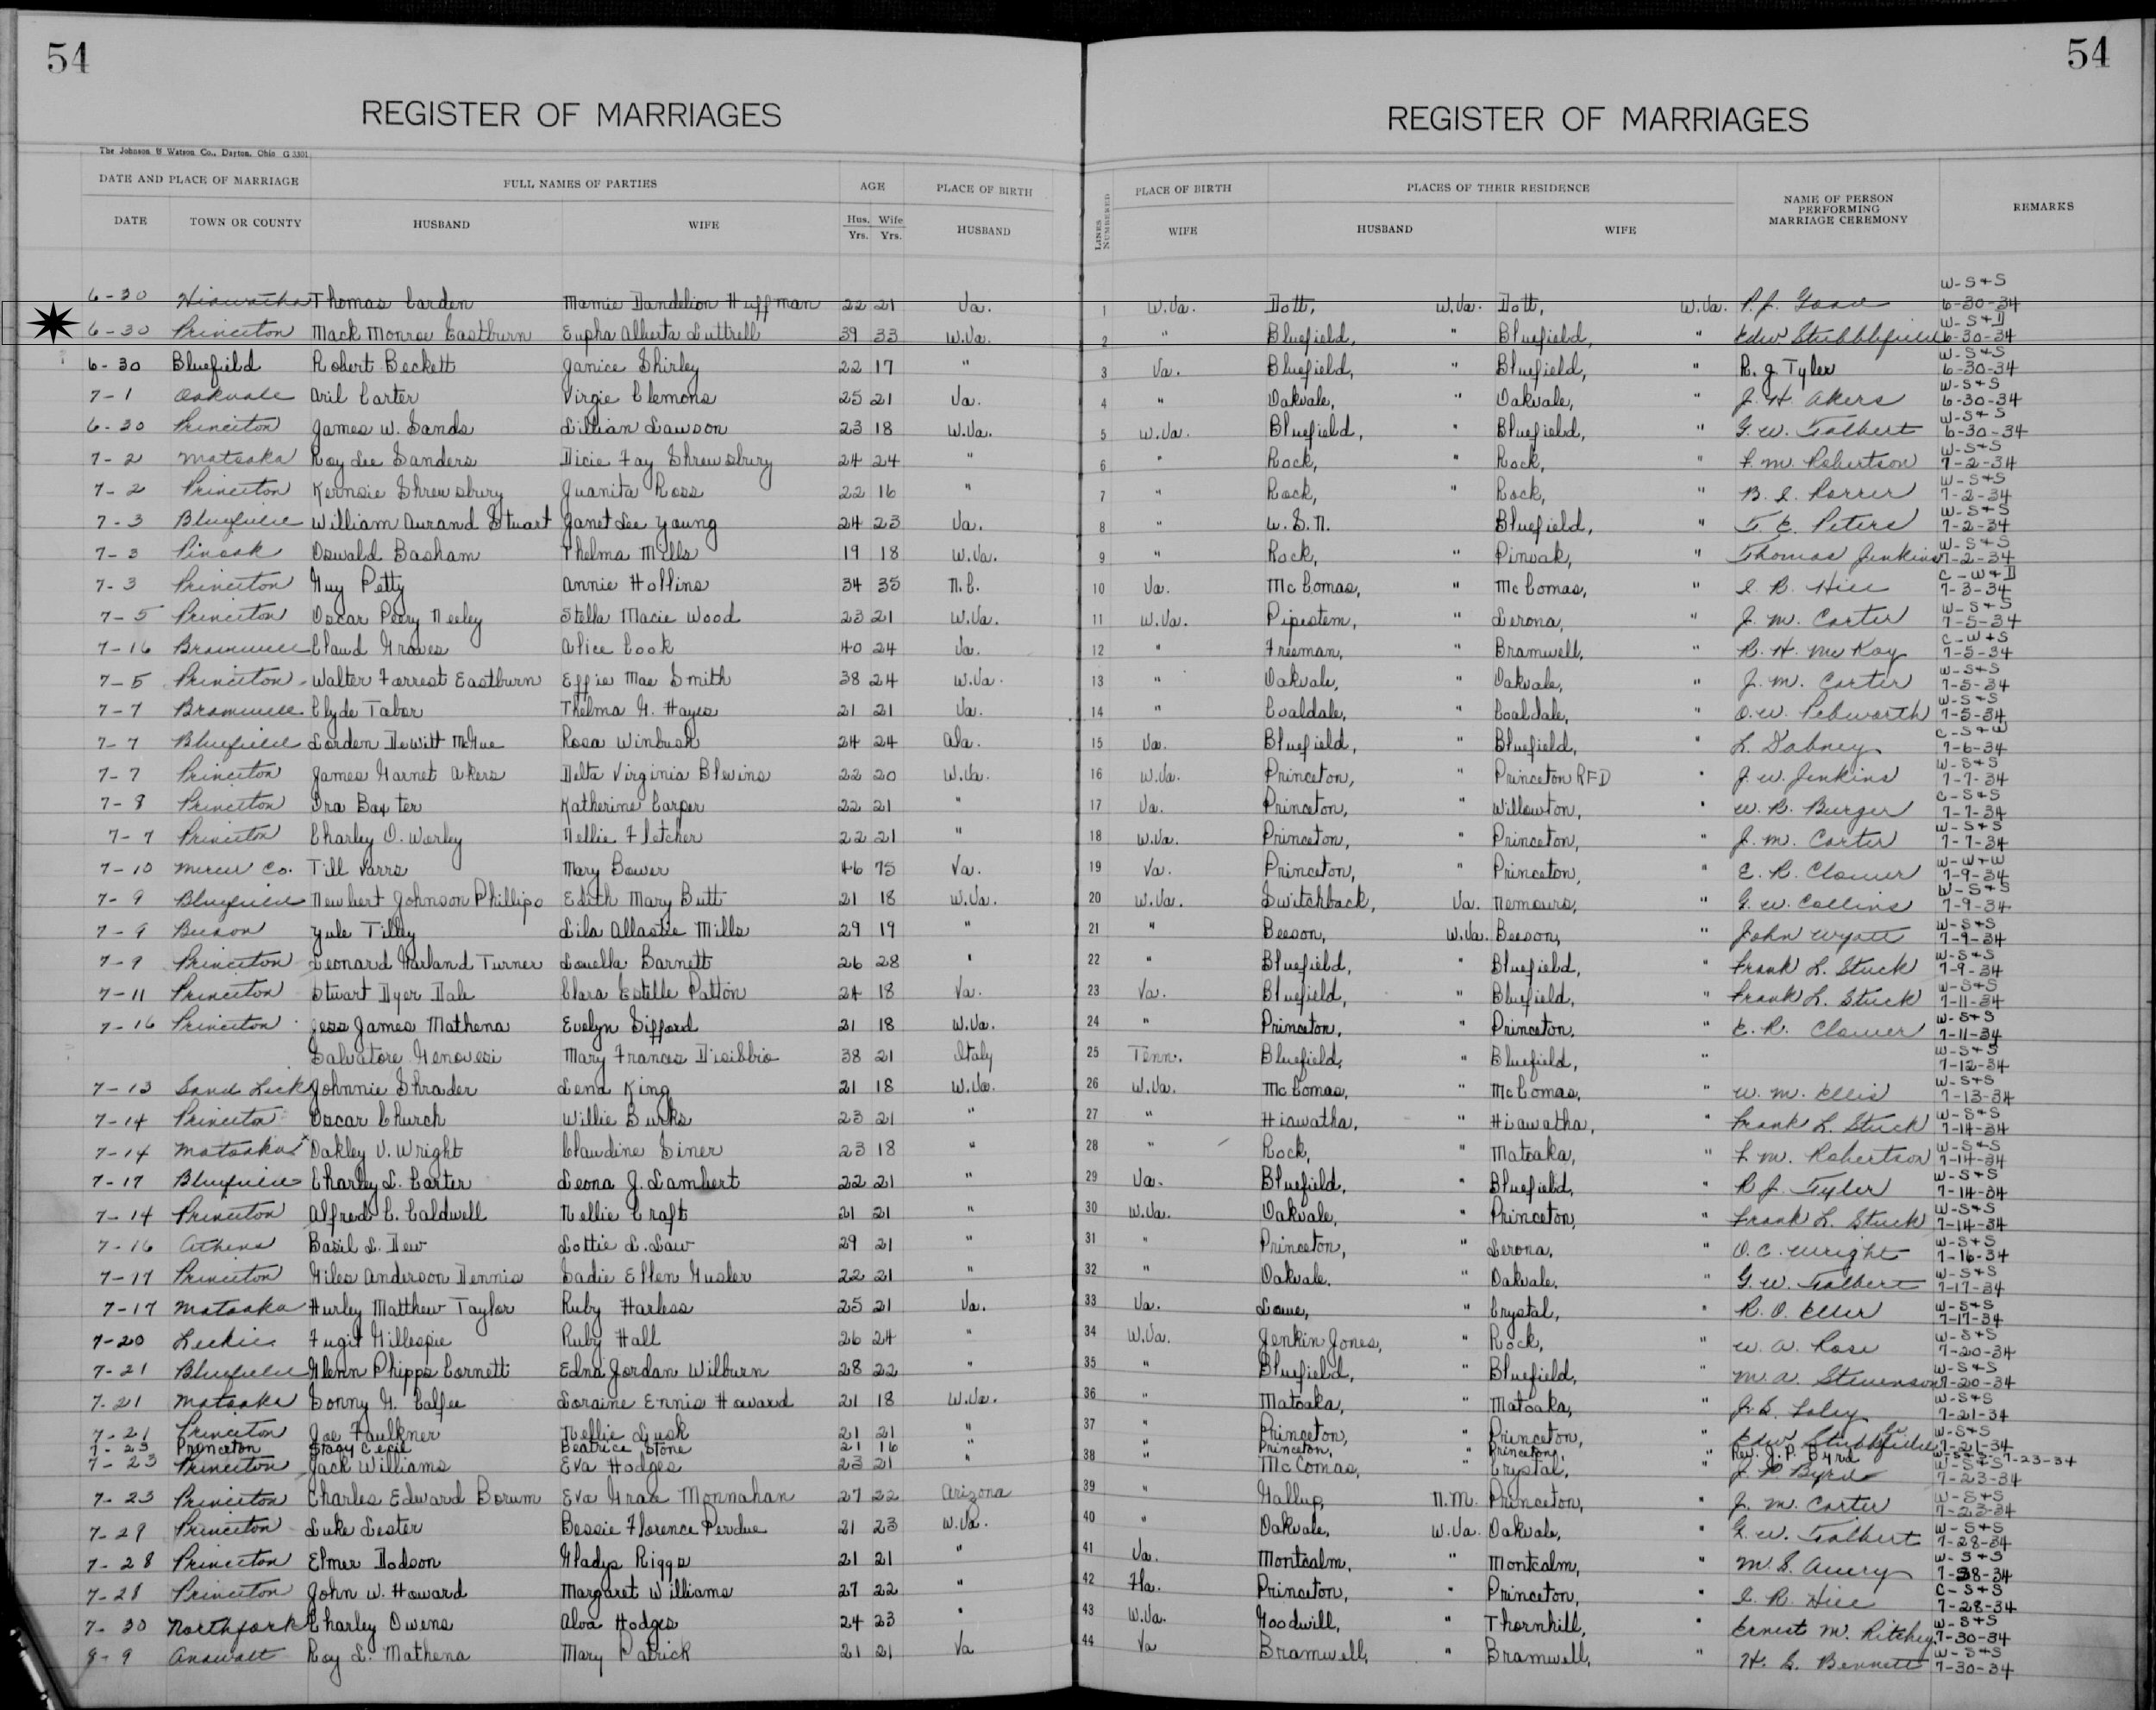 54
54
REGISTER OF MARRIAGES
REGISTER OF MARRIAGES
The Johnson & Watson Co., Dayton, Ohio G 3301
DATE AND PLACE OF MARRIAGE FULL NAMES OF PARTIES AGE PLACE OF BIRTH LINES NUMBERED PLACE OF BIRTH PLACES OF THEIR RESIDENCE NAME OF PERSON PERFORMING MARRIAGE CEREMONY REMARKS
DATE TOWN OR COUNTY HUSBAND WIFE Hus. Yrs. Wife Yrs. HUSBAND WIFE HUSBAND WIFE
6-30 Hiawatha Thomas Carden Mamie Dandelion Huffman 22 21 Va. 1 W.Va. Dott, W.Va. Dott, W.Va. P.J. W-S+S 6-30-34
6-30 Princeton Mack Monroe Eastburn Eupha Alberta Luttrell 39 33 W.Va. 2 " Bluefield, " Bluefield, " Edw Stubblefield W-S+D 6-30-34
6-30 Bluefield Robert Beckett Janice Shirley 22 17 " 3 Va. Bluefield, " Bluefield, " R. J. Tyler W-S+S 6-30-34
7-1 Oakvale Aril Carter Virgie Clemons 25 21 Va. 4 " Oakvale, " Oakvale, " J. H. Akers W-S+S 6-30-34
6-30 Princeton James W. Sands Lillian Lawson 23 18 W.Va. 5 W.Va. Bluefield, " Bluefield, " G. W. Talbert W-S+S 6-30-34
7-2 Matoaka Roy Lee Sanders Dicie Fay Shrewsbury 24 24 " 6 " Rock, " Rock, " F. M. Robertson W-S+S 7-2-34
7-2 Princeton Kernsie Shrewsbury Juanita Ross 22 16 " 7 " Rock, " Rock, " W-S+S 7-2-34
7-3 Bluefield William Aurand Stuart Janet Lee Young 24 23 Va. 8 " U.S.N. Bluefield, " T. E. Peters W-S+S 7-2-34
7-3 Pinoak Oswald Basham Thelma Mills 19 18 W.Va. 9 " Rock, " Pinoak, " Thomas Jenkins W-S+S 7-2-34
7-3 Princeton Guy Petty Annie Hollins 34 35 N.C. 10 Va. McComas, " McComas, " Hill C-W+D 7-3-34
7-5 Princeton Oscar Perry Neeley Stella Macie Wood 23 21 W.Va. 11 W.Va. Pipestem, " Lerona, " J. M. Carter W-S+S 7-5-34
7-16 Bramwell Claud Graves Alice Cook 40 24 Va. 12 " Freeman, " Bramwell, " R. H. McKoy C-W+S 7-5-34
7-5 Princeton Walter Forrest Eastburn Effie Mae Smith 38 24 W.Va. 13 " Oakvale, " Oakvale, " J. M. Carter W-S+S 7-5-34
7-7 Bramwell Clyde Tabor Thelma G. Hayes 21 21 Va. 14 " Coaldale, " Coaldale, " O. W. Pebworth W-S+S 7-5-34
7-7 Bluefield Lorden DeWitt McGue Rosa Winbush 24 24 Ala. 15 Va. Bluefield, " Bluefield, " L. Dabney C-S+W 7-6-34
7-7 Princeton James Garnet Akers Delta Virginia Blevins 22 20 W.Va. 16 W.Va. Princeton, " Princeton RFD " J. W. Jenkins W-S+S 7-7-34
7-8 Princeton Ira Baxter Katherine Carper 22 21 " 17 Va. Princeton, " Willowton, " W. R. Burger C-S+S 7-7-34
7-7 Princeton Charley O. Worley Nellie Fletcher 22 21 " 18 W.Va. Princeton, " Princeton, " J. M. Carter W-S+S 7-7-34
7-10 Mercer Co. Till Varrs Mary Bower 46 75 Va. 19 Va. Princeton, " Princeton, " E. R. Clower W-W+W 7-9-34
7-9 Bluefield Newbert Johnson Phillips Edith Mary Butt 21 18 W.Va. 20 W.Va. Switchback, Va. Nemours, " G. W. Collins W-S+S 7-9-34
7-9 Beeson Yule Tilley Lila Allastie Mills 29 19 " 21 " Beeson, W.Va. Beeson, " John Wyatt W-S+S 7-9-34
7-9 Princeton Leonard Garland Turner Louella Barnett 26 28 " 22 " Bluefield, " Bluefield, " Frank L. Stuck W-S+S 7-9-34
7-11 Princeton Stuart Dyer Dale Clara Estelle Patton 24 18 Va. 23 Va. Bluefield, " Bluefield, " Frank L. Stuck W-S+S 7-11-34
7-16 Princeton Jess James Mathena Evelyn Sifford 21 18 W.Va. 24 " Princeton, " Princeton, " E. R. Clower W-S+S 7-11-34
Salvatore Genovesi Mary Frances 38 21 Italy 25 Tenn. Bluefield, " Bluefield, " W-S+S 7-12-34
7-13 Sand Lick Johnnie Shrader Lena King 21 18 W.Va. 26 W.Va. McComas, " McComas, " W. M. Ellis W-S+S 7-13-34
7-14 Princeton Oscar Church Willie Burks 23 21 " 27 " Hiawatha, " Hiawatha, " Frank L. Stuck W-S+S 7-14-34
7-14 Matoaka Oakley V. Wright Claudine Siner 23 18 " 28 " Rock, " Matoaka, " F. M. Robertson W-S+S 7-14-34
7-17 Bluefield Charley L. Carter Leona J. Lambert 22 21 " 29 Va. Bluefield, " Bluefield, " R. J. Tyler W-S+S 7-14-34
7-14 Princeton Alfred C. Caldwell Nellie Craft 21 21 " 30 W.Va. Oakvale, " Princeton, " Frank L. Stuck W-S+S 7-14-34
7-16 Athens Basil L. Dew Lottie L. Law 29 21 " 31 " Princeton, " Lerona, " O. C. Wright W-S+S 7-16-34
7-17 Princeton Giles Anderson Dennis Sadie Ellen Gusler 22 21 " 32 " Oakvale, " Oakvale, " G. W. Talbert W-S+S 7-17-34
7-17 Matoaka Hurley Matthew Taylor Ruby Harless 25 21 Va. 33 Va. Lowe, " Crystal, " R. O. Eller W-S+S 7-17-34
7-20 Leckie Fugit Gillespie Ruby Hall 26 24 " 34 W.Va. Jenkin Jones, " Rock, " W. A. Rose W-S+S 7-20-34
7-21 Bluefield Glenn Phipps Cornett Edna Jordan Wilburn 28 22 " 35 " Bluefield, " Bluefield, " M. A. Stevenson W-S+S 7-20-34
7-21 Matoaka Sonny G. Calfee Loraine Ennis Howard 21 18 W.Va. 36 " Matoaka, " Matoaka, " W-S+S 7-21-34
7-21 Princeton Joe Faulkner Nellie Lusk 21 21 " 37 " Princeton, " Princeton, " Edw Stubblefield W-S+S 7-21-34
7-23 Princeton Stacy Cecil Beatrice Stone 21 16 Princeton, " Princeton, Rev. J. P. Byrd W-S+S-7-23-34
7-23 Princeton Jack Williams Eva Hodges 23 21 " 38 " McComas, " Crystal, " J. P. Byrd W-S+S 7-23-34
7-23 Princeton Charles Edward Borum Eva Grace Monnahan 27 22 Arizona 39 " Gallup, N.M. Princeton, " J. M. Carter W-S+S 7-23-34
7-29 Princeton Luke Lester Bessie Florence Perdue 21 23 W.Va. 40 " Oakvale, W.Va. Oakvale, " G. W. Talbert W-S+S 7-28-34
7-28 Princeton Elmer Dodson Gladys Riggs 21 21 " 41 Va. Montcalm, " Montcalm, " M. S. Avery W-S+S 7-28-34
7-28 Princeton John W. Howard Margaret Williams 27 22 " 42 Fla. Princeton, " Princeton, " Hill C-S+S 7-28-34
7-30 Northfork Charley Owens Alva Hodges 24 23 " 43 W.Va. Goodwill, " Thornhill, " Ernest M. Ritchey W-S+S 7-30-34
8-9 Anawalt Roy L. Mathena Mary Patrick 21 21 Va 44 Va Bramwell, " Bramwell, " Bennett W-S+S 7-30-34